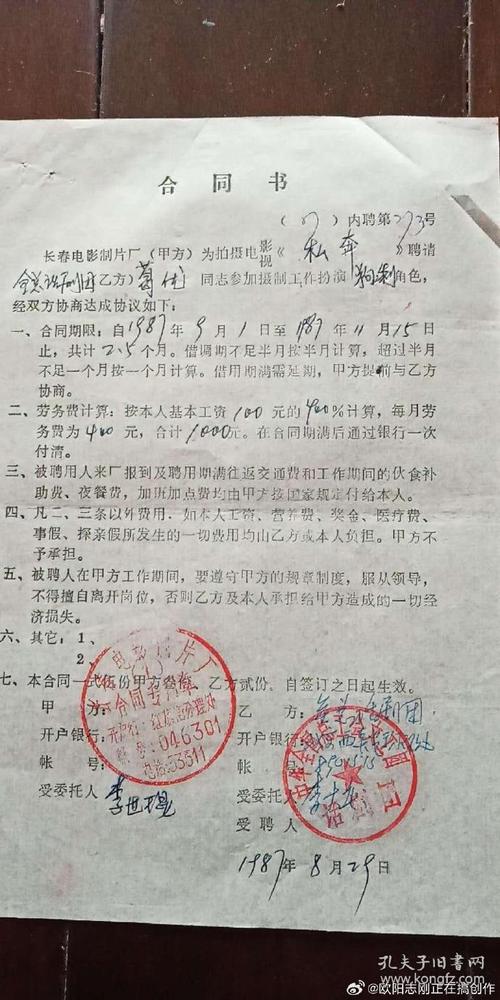 合同书
(87)内聘第273号
长春电影制片厂(甲方)为拍摄电影视《私奔》聘请
全总话剧团乙方)葛优同志参加摄制工作扮演狗剩角色,
经双方协商达成协议如下:
一、合同期限:自1987年9月1日至1987年11月15日
止,共计2.5个月。借调期不足半月按半月计算,超过半月
不足一个月按一个月计算。借用期满需延期,甲方提前与乙方
协商。
二、劳务费计算:按本人基本工资100元的400%计算,每月劳
务费为400元,合计1000元。在合同期满后通过银行一次
付清。
三、被聘用人来厂报到及聘用期满往返交通费和工作期间的伙食补
助费、夜餐费,加班加点费均由甲方按国家规定付给本人。
四、凡二、三条以外费用.如本人工资、营养费、奖金、医疗费、
事假、探亲假所发生的一切费用均由乙方或本人负担。甲方不
予承担。
五、被聘人在甲方工作期间,要遵守甲方的规章制度,服从领导,
不得擅自离开岗位,否则乙方及本人承担给甲方造成的一切经
济损失。
六、其它:1、
2、
七、本合同一式伍份甲方叁份,乙方贰份.自签订之日起生效。
甲方:
乙方:全总话剧团
开户银行:
开户银行:
帐号:
帐号:
受委托人
受委托人
李世
受聘人
电影制片厂
合同专用章
046301
电话:53311
话剧团
1987年8月29日
孔夫子旧书网
kongfz.com
@欧阳志刚正在搞创作